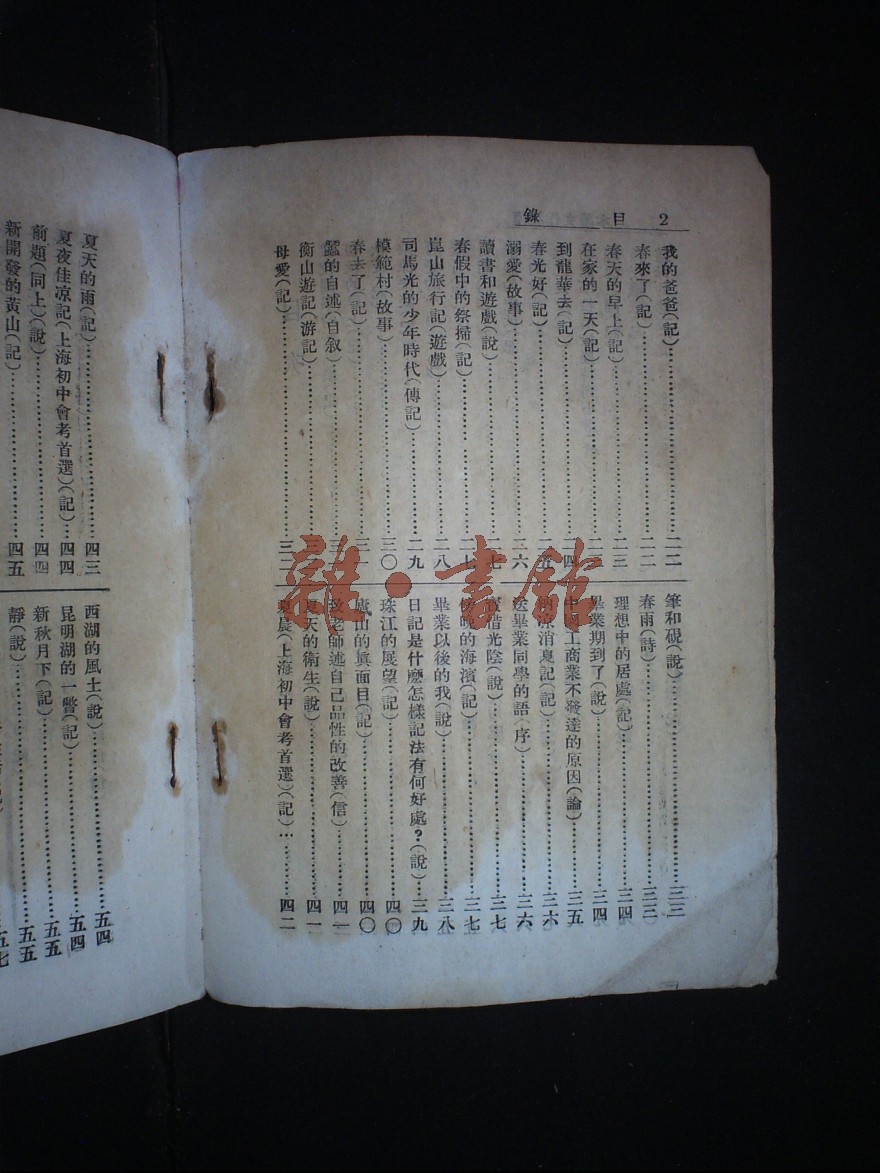 2 目 錄
我的爸爸(記)……二二
春來了(記)……二二
春天的早上(記)……二三
在家的一天(記)……二三
到龍華去(記)……二四
春光好(記)……二五
溺愛(故事)……二六
讀書和遊戲(說)……二七
春假中的祭掃(記)……二七
崑山旅行記(遊戲)……二八
司馬光的少年時代(傳記)……二九
模範村(故事)……三〇
春去了(記)……三一
蠶的自述(自叙)……三一
衡山遊記(游記)……
母愛(記)……三二
筆和硯(說)……三三
春雨(詩)……三三
理想中的居處(記)……三四
畢業期到了(說)……三四
中國工商業不發達的原因(論)……三五
納涼消夏記(記)……三六
送畢業同學的語(序)……三六
寶惜光陰(說)……三七
傍晚的海濱(記)……三七
畢業以後的我(說)……三八
日記是什麼怎樣記法有何好處?(說)……三九
珠江的展望(記)……四〇
廬山的眞面目(記)……四〇
致老師述自己品性的改善(信)……四一
夏天的衛生(說)……四一
夏晨(上海初中會考首選)(記)……四二
夏天的雨(記)……四三
夏夜佳凉記(上海初中會考首選)(記)……四四
前題(同上)(說)……四四
新開發的黃山(記)……四五
西湖的風土(說)……五四
昆明湖的一瞥(記)……五四
新秋月下(記)……五五
靜(說)……五五
五七
雜·書館